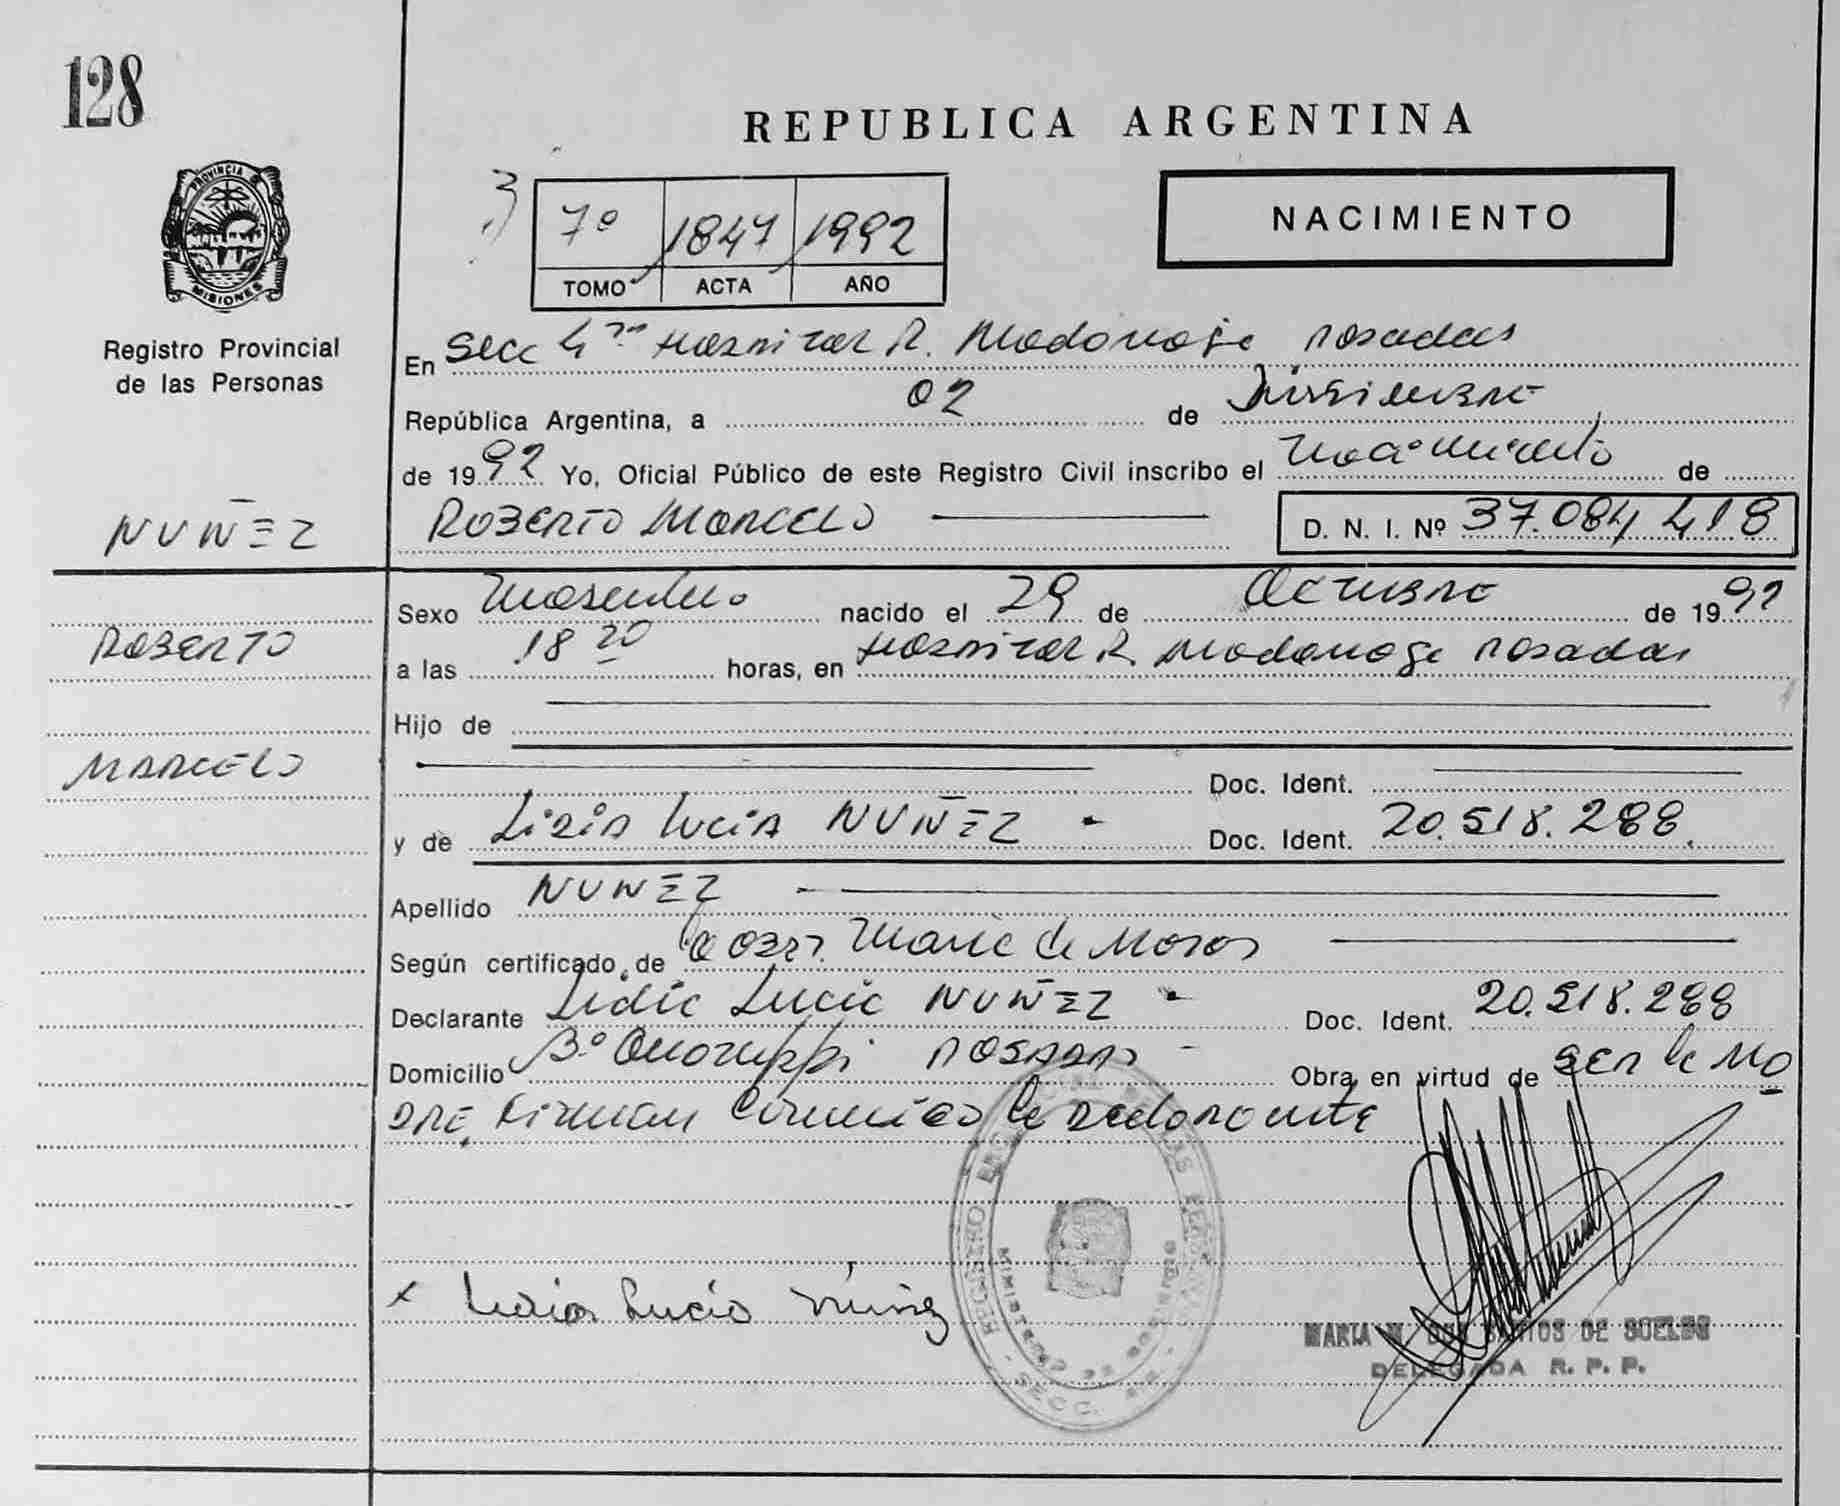 128
REPUBLICA ARGENTINA
PROVINCIA D
MISIONES
Registro Provincial
de las Personas
3)
7º 1847 1992
TOMO ACTA AÑO
NACIMIENTO
En Secc 4ta Hospital R. Madariaga Posadas
República Argentina, a 02 de Diciembre
de 1992 Yo, Oficial Público de este Registro Civil inscribo el Nacimiento de
NUÑEZ
ROBERTO MARCELO
D. N. I. Nº 37.084.418
Sexo Masculino nacido el 29 de Octubre de 1992
ROBERTO
a las 18 20 horas, en Hospital R. Madariaga Posadas
Hijo de
MARCELO
Doc. Ident.
y de Lidia Lucia NUÑEZ - Doc. Ident. 20.518.288.
Apellido NUÑEZ
Según certificado de Obst. Maria de
Declarante Lidia Lucia NUÑEZ - Doc. Ident. 20.518.288
Domicilio Bº POSADAS - Obra en virtud de ser la Ma
dre, Firman conmigo la declarante
x Lidia Lucia Núñez
REGISTRO
MINISTERIO DE GOBIERNO
SECC.
MARIA M. DOS SANTOS DE
DELEGADA R. P. P.